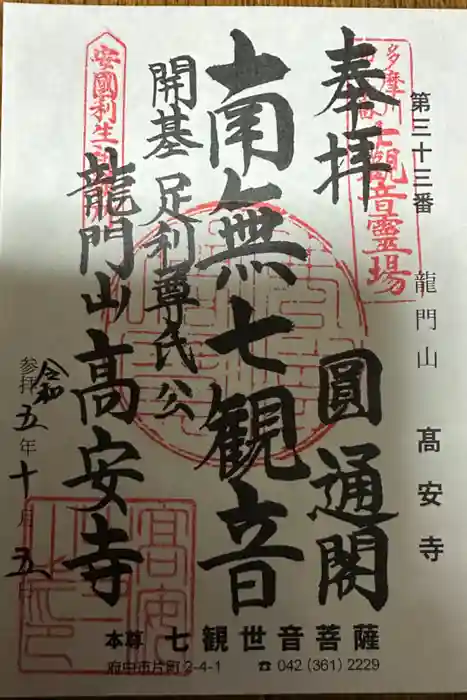 第三十三番 龍門山 髙安寺
奉拝 圓通閣
南無七観音
開基 足利尊氏公
龍門山高安寺
参拝 令和五年十月五日
七觀音靈場
安國利生
本尊 七観世音菩薩
府中市片町2-4-1 ☎ 042 (361) 2229